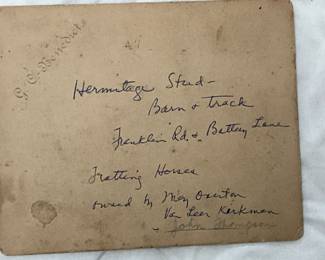 G. C. Benedict
Hermitage Stud -
Barn & Track
Franklin Rd. & Battery Lane
Trotting Horses
owned by May Overton
Van Leer Kirkman
- John Thompson